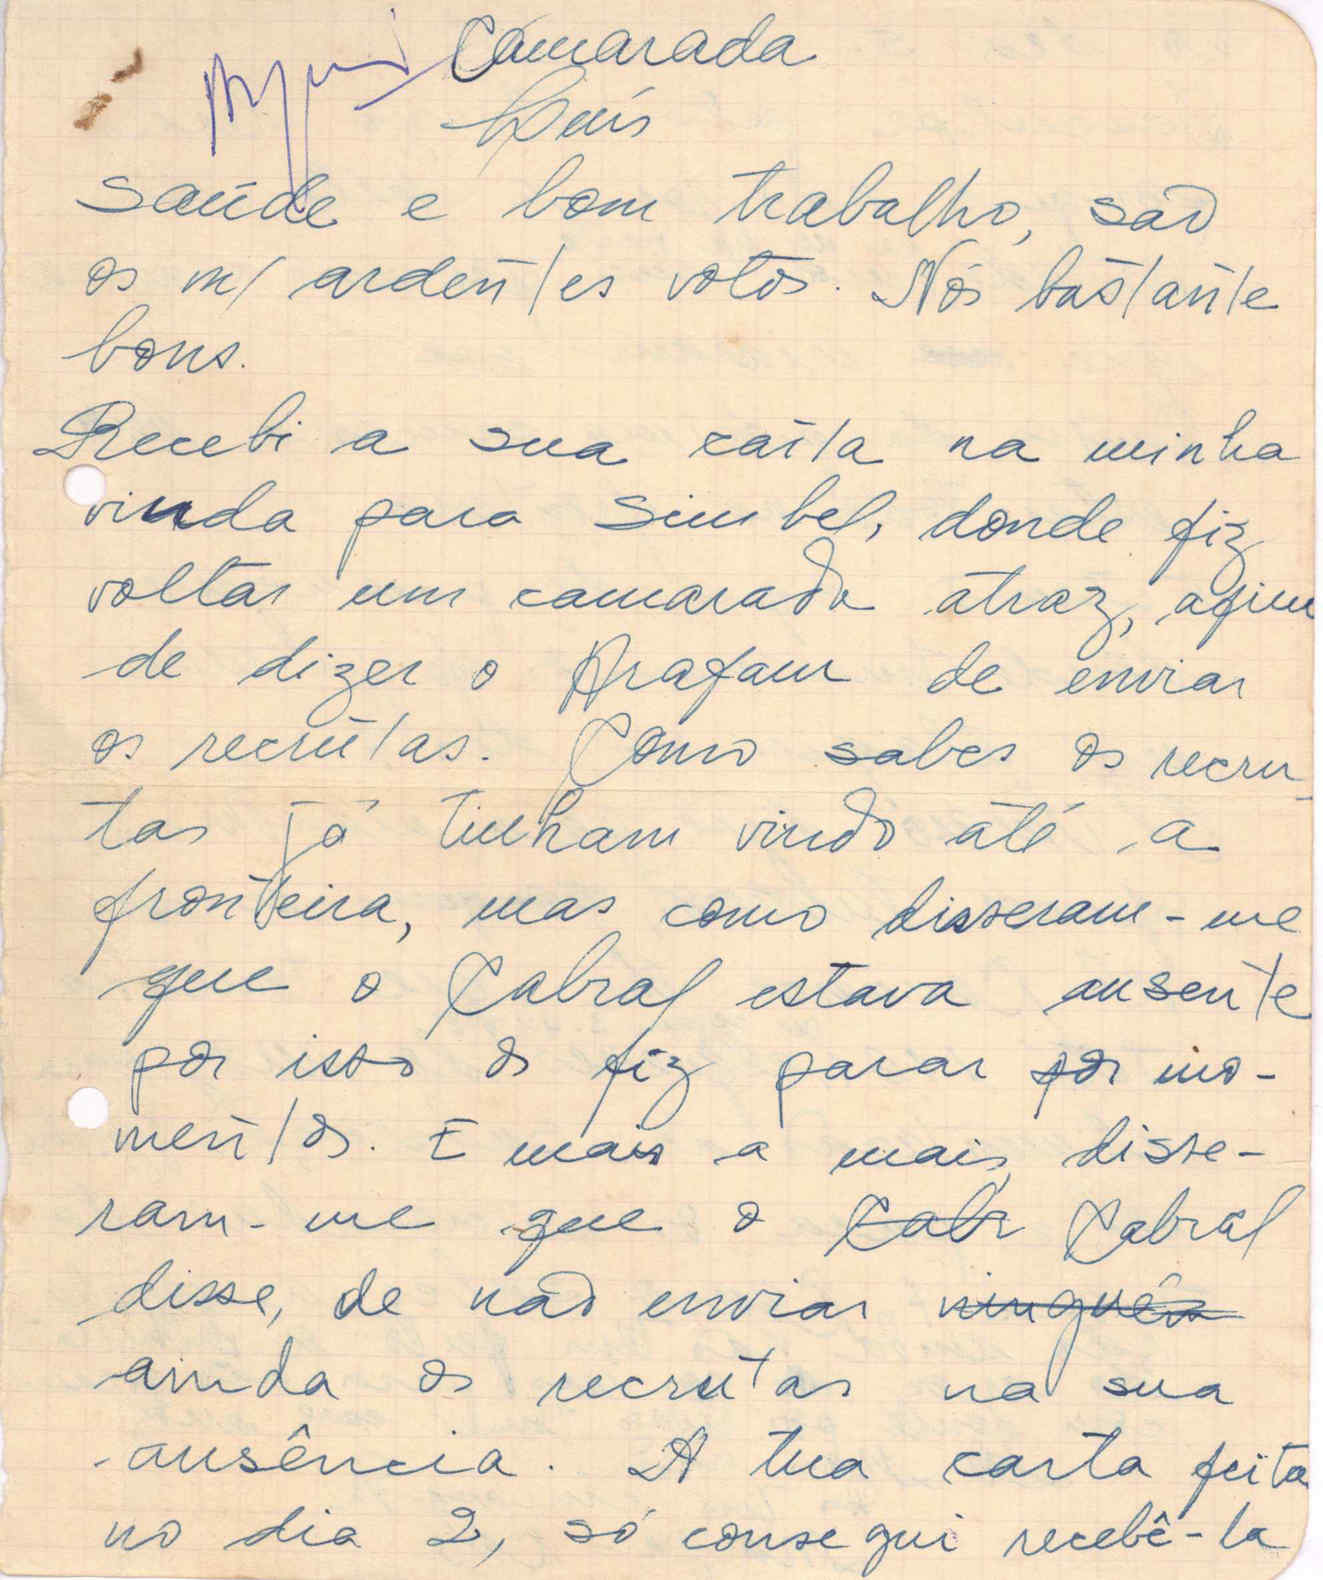 Camarada
Luís
Saúde e bom trabalho, são
os m/ ardentes votos. Nós bastante
bons.
Recebi a sua carta na minha
vinda para Simbel, donde fiz
voltar um camarada atraz, afim
de dizer o Arafam de enviar
os recrutas. Como sabes os recru-
tas já tinham vindo até a
fronteira, mas como disseram-me
que o Cabral estava ausente
por isso os fiz parar por mo-
mentos. E mais a mais, disse-
ram-me que o Cabr Cabral
disse, de não enviar ninguém
ainda os recrutas na sua
ausência. A tua carta feita
no dia 2, só consegui recebê-la